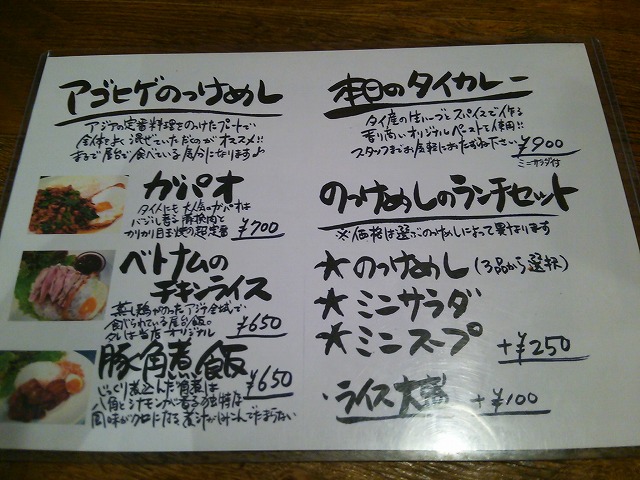 アゴヒゲのっけめし
アジアの定番料理をのっけたプレートで
全体をよく混ぜていただくのがオススメ!!
まるで屋台で食べている気分になります♪
ガパオ
タイ人にも大人気のガパオは
バジル香る豚挽肉と
カリカリ目玉焼の超定番 ¥700
ベトナムの
チキンライス
蒸し鶏がのったアジア全域で
食べられている屋台飯。
タレは当店オリジナル ¥650
豚角煮飯
じっくり煮込んだ角煮は ¥650
八角とシナモンが香る独特な
風味がクセになる 煮汁がしみこんでたまらない
本日のタイカレー
タイ産の生ハーブとスパイスで作る
香り高いオリジナルペーストを使用!!
スタッフまでお気軽におたずね下さい ¥900
ミニサラダ付
のっけめしのランチセット
※価格は選ぶのっけめしによって異なります
★のっけめし(3品から選択)
★ミニサラダ
★ミニスープ +¥250
・ライス大盛 +¥100